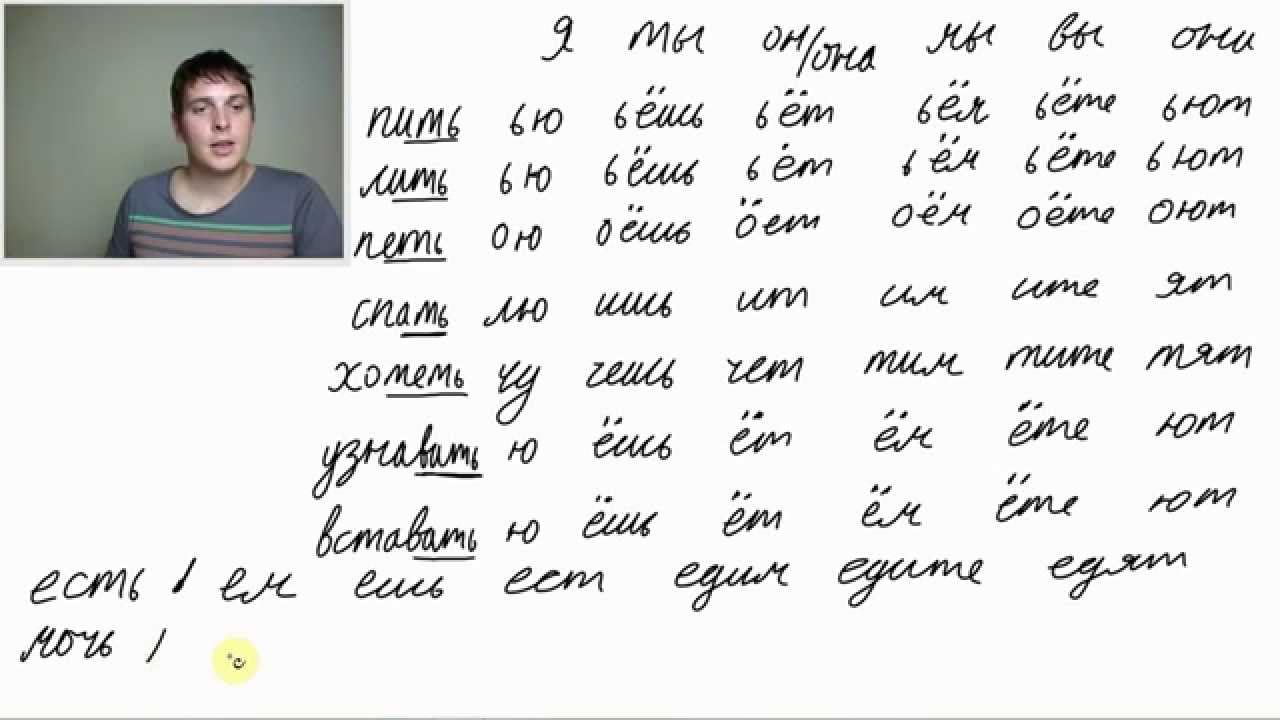 я ты он/она мы вы они
пить ью ьёшь ьёт ьём ьёте ьют
лить ью ьёшь ьёт ьём ьёте ьют
петь ою оёшь öет оём оёте оют
спать лю ишь ит им ите ят
хотеть чу чешь чет тим тите тят
узнавать ю ёшь ёт ём ёте ют
вставать ю ёшь ёт ём ёте ют
есть / ем ешь ест едим едите едят
мочь /